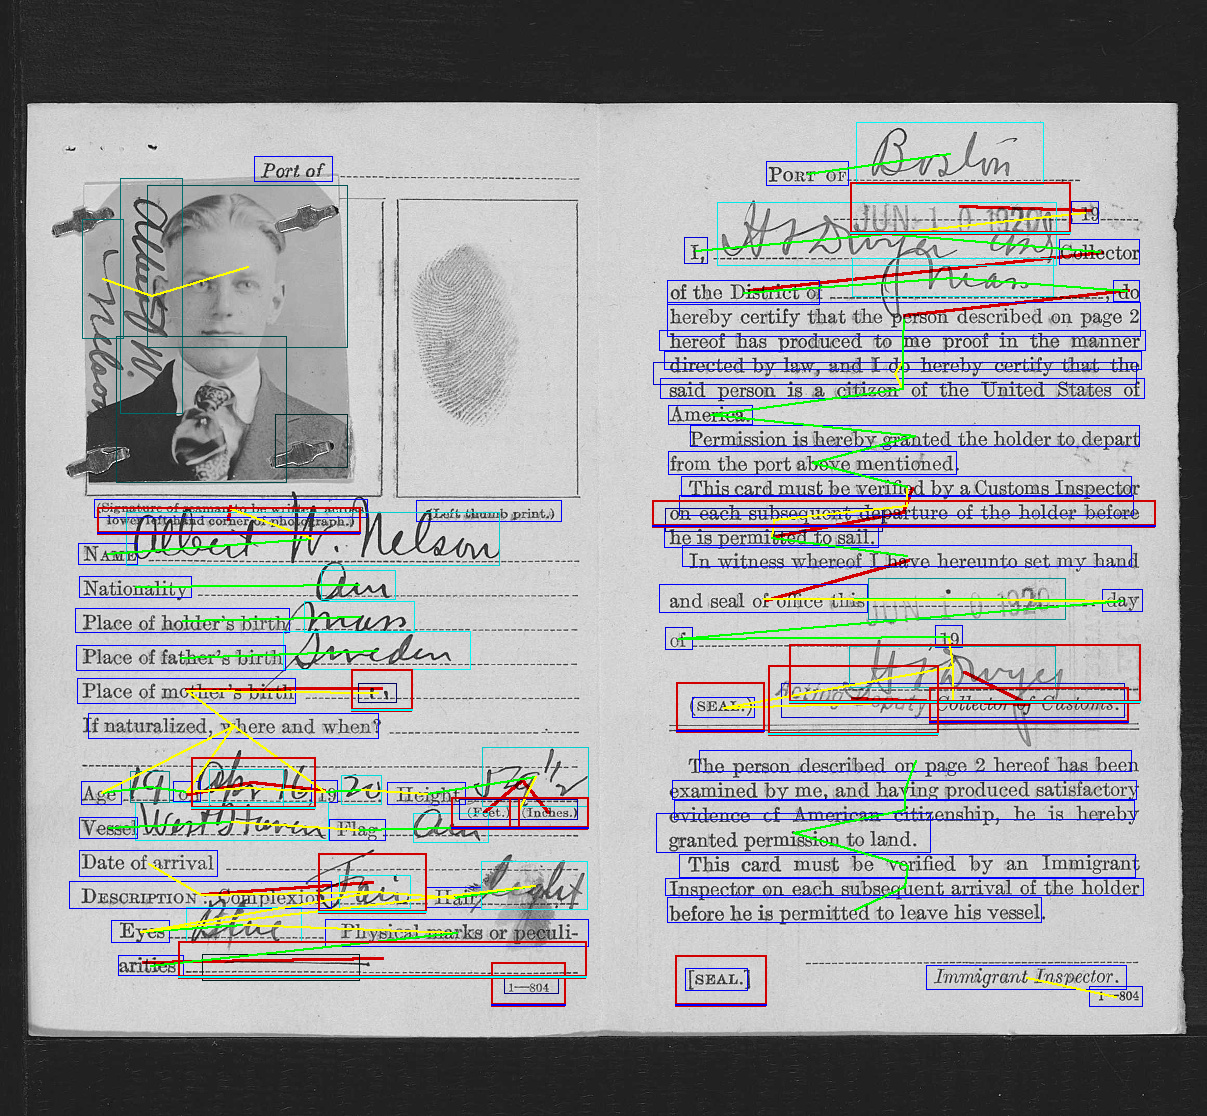 Port of
Albert W.
Nelson
(Signature of seaman to be written across
lower left-hand corner of photograph.)
(Left thumb print.)
NAME Albert W. Nelson
Nationality Am
Place of holder's birth Mass
Place of father's birth Sweden
Place of mother's birth "
If naturalized, where and when?
Age 19 on Apr 16, 1920. Height 5 9 1/2
(Feet.) (Inches.)
Vessel West Haven Flag Am
Date of arrival
DESCRIPTION: Complexion Fair Hair Light
Eyes Blue Physical marks or peculi-
arities
1—804
PORT OF Boston
JUN 10 1920, 19
I, H J Dwyer Collector
of the District of Mass, do
hereby certify that the person described on page 2
hereof has produced to me proof in the manner
directed by law, and I do hereby certify that the
said person is a citizen of the United States of
America.
Permission is hereby granted the holder to depart
from the port above mentioned.
This card must be verified by a Customs Inspector
on each subsequent departure of the holder before
he is permitted to sail.
In witness whereof I have hereunto set my hand
and seal of office this JUN 10 1920 day
of , 19
H J Dwyer
(SEAL.) Acting Deputy Collector of Customs.
The person described on page 2 hereof has been
examined by me, and having produced satisfactory
evidence of American citizenship, he is hereby
granted permission to land.
This card must be verified by an Immigrant
Inspector on each subsequent arrival of the holder
before he is permitted to leave his vessel.
[SEAL.]
Immigrant Inspector.
1—804